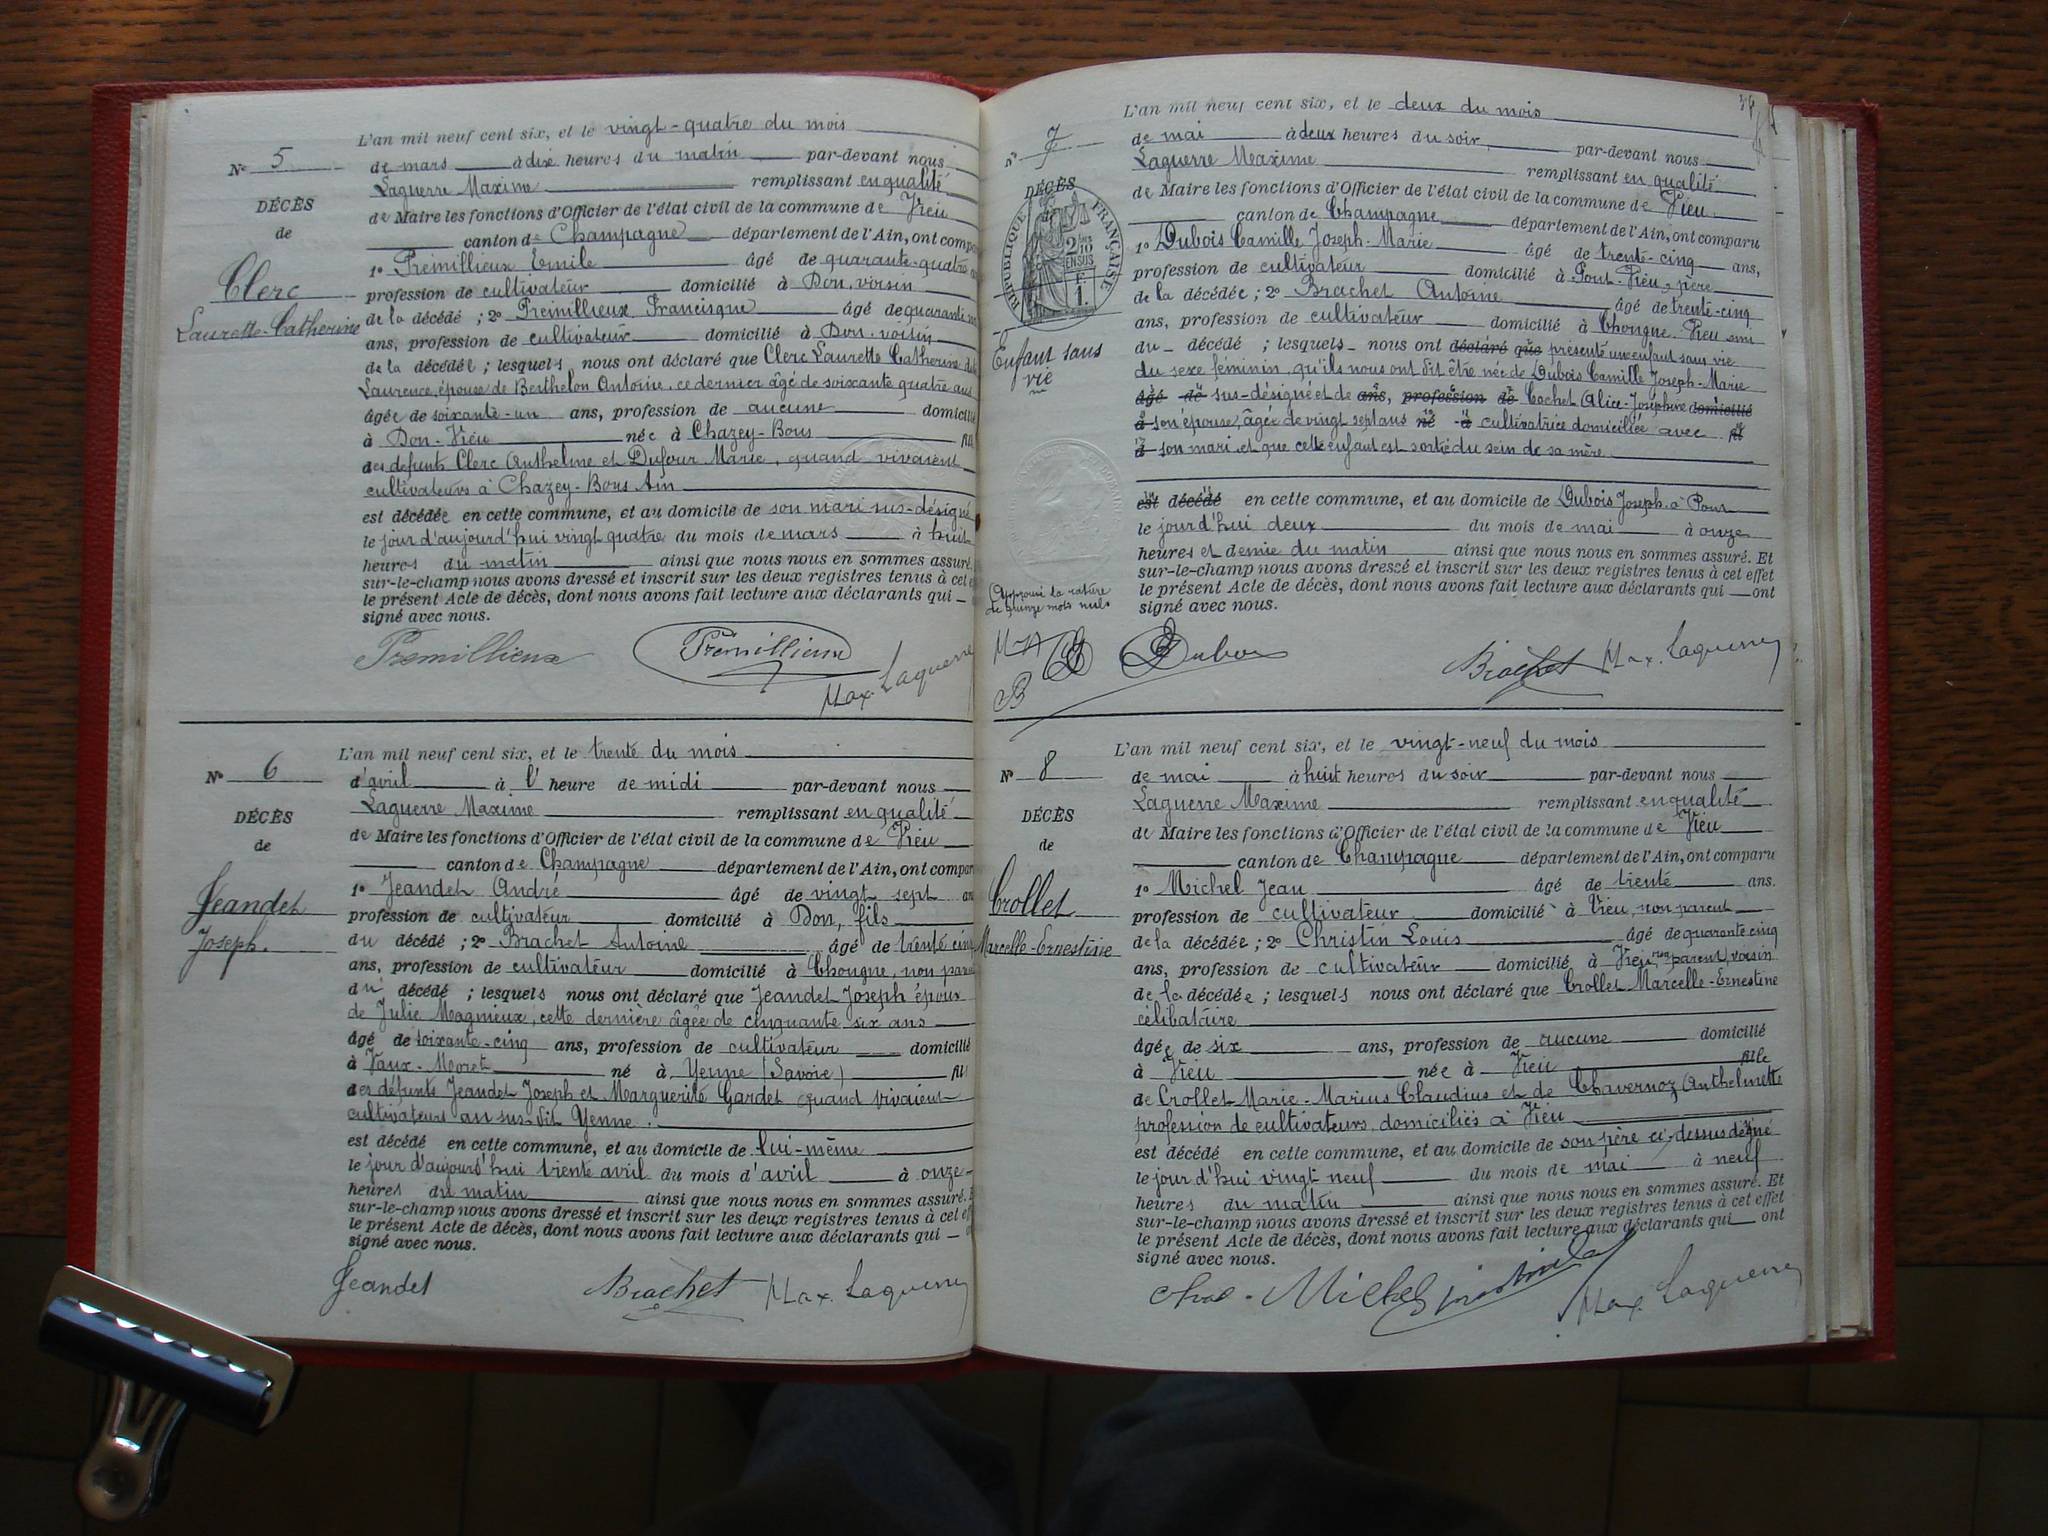 L'an mil neuf cent six, et le vingt-quatre du mois
Nº 5
de mars à dix heures du matin par-devant nous
Laguerre Maxime remplissant en qualité
DÉCÈS
de Maire les fonctions d'Officier de l'état civil de la commune de Vieu
de
canton de Champagne département de l'Ain, ont compa
1º Premillieux Emile âgé de quarante-quatre
Clerc
profession de cultivateur domicilié à Don, voisin
Laurette-Catherine
de la décédé ; 2º Premillieux Francisque âgé de quarante
ans, profession de cultivateur domicilié à Don, voisin
de la décédée ; lesquels nous ont déclaré que Clerc Laurette Catherine dite
Laurence, épouse de Berthelon Antoine, ce dernier âgé de soixante quatre ans
âgée de soixante-un ans, profession de aucune domicilié
à Don-Vieu née à Chazey-Bons fill
des defunts Clerc Anthelme et Dufour Marie, quand vivaient
cultivateurs à Chazey-Bons Ain
est décédée en cette commune, et au domicile de son mari sus-désigné
le jour d'aujourd'hui vingt quatre du mois de mars à huit
heures du matin ainsi que nous nous en sommes assuré.
sur-le-champ nous avons dressé et inscrit sur les deux registres tenus à cet e
le présent Acte de décès, dont nous avons fait lecture aux déclarants qui
signé avec nous.
Premillieux Premillieux Max. Laguerre
L'an mil neuf cent six, et le trente du mois
Nº 6
d'avril à l' heure de midi par-devant nous
Laguerre Maxime remplissant en qualité
DÉCÈS
de Maire les fonctions d'Officier de l'état civil de la commune de Vieu
de
canton de Champagne département de l'Ain, ont compar
1º Jeandet André âgé de vingt sept an
Jeandet
profession de cultivateur domicilié à Don, fils
Joseph.
du décédé ; 2º Brachet Antoine âgé de trente cinq
ans, profession de cultivateur domicilié à Chongne, non paren
du décédé ; lesquels nous ont déclaré que Jeandet Joseph époux
de Julie Magnieux, cette dernière âgée de cinquante six ans
âgé de soixante-cinq ans, profession de cultivateur domicilié
à Vaux-Moret né à Yenne (Savoie) fils
des défunts Jeandet Joseph et Marguerite Gardet quand vivaient
cultivateurs au sus-dit Yenne.
est décédé en cette commune, et au domicile de lui-même
le jour d'aujourd'hui trente avril du mois d'avril à onze
heures du matin ainsi que nous nous en sommes assuré.
sur-le-champ nous avons dressé et inscrit sur les deux registres tenus à cet ef
le présent Acte de décès, dont nous avons fait lecture aux déclarants qui
signé avec nous.
Jeandet Brachet Max. Laguerre
L'an mil neuf cent six, et le deux du mois
Nº 7
de mai à deux heures du soir par-devant nous
Laguerre Maxime remplissant en qualité
DÉCÈS
de Maire les fonctions d'Officier de l'état civil de la commune de Vieu
de
RÉPUBLIQUE FRANÇAISE
canton de Champagne département de l'Ain, ont comparu
2/10 EN SUS
1º Dubois Camille Joseph-Marie âgé de trente-cinq ans,
F. 1.
profession de cultivateur domicilié à Pont-Vieu, père
de la décédée ; 2º Brachet Antoine âgé de trente-cinq
ans, profession de cultivateur domicilié à Chongne-Vieu ami
Enfant sans
vie
du décédé ; lesquels nous ont déclaré que présenté un enfant sans vie
du sexe féminin, qu'ils nous ont dit être née de Dubois Camille Joseph-Marie
âgé de sus-désigné et de ans, profession de Cochet Alice-Joséphine domicilié
à son épouse, âgée de vingt sept ans né à cultivatrice domiciliée avec fil
son mari et que cette enfant est sortie du sein de sa mère.
est décédé en cette commune, et au domicile de Dubois Joseph à Pont
le jourd'hui deux du mois de mai à onze
heures et demie du matin ainsi que nous nous en sommes assuré. Et
sur-le-champ nous avons dressé et inscrit sur les deux registres tenus à cet effet
le présent Acte de décès, dont nous avons fait lecture aux déclarants qui ont
signé avec nous.
Approuvé la rature
de quinze mots nuls
B
Dubois Brachet Max. Laguerre
L'an mil neuf cent six, et le vingt-neuf du mois
Nº 8
de mai à huit heures du soir par-devant nous
Laguerre Maxime remplissant en qualité
DÉCÈS
de Maire les fonctions d'Officier de l'état civil de la commune de Vieu
de
canton de Champagne département de l'Ain, ont comparu
1º Michel Jean âgé de trente ans.
Crollet
profession de cultivateur domicilié à Vieu, non parent
Marcelle-Ernestine
de la décédée ; 2º Christin Louis âgé de quarante cinq
ans, profession de cultivateur domicilié à Vieu non parent, voisin
de la décédée ; lesquels nous ont déclaré que Crollet Marcelle-Ernestine
célibataire
âgée de six ans, profession de aucune domicilié
à Vieu née à Vieu fille
de Crollet Marie-Marius Claudius et de Chavernoz Anthelmette
profession de cultivateurs, domiciliés à Vieu
est décédé en cette commune, et au domicile de son père ci-dessus désigné
le jourd'hui vingt neuf du mois de mai à neuf
heures du matin ainsi que nous nous en sommes assuré. Et
sur-le-champ nous avons dressé et inscrit sur les deux registres tenus à cet effet
le présent Acte de décès, dont nous avons fait lecture aux déclarants qui ont
signé avec nous.
Michel Max. Laguerre